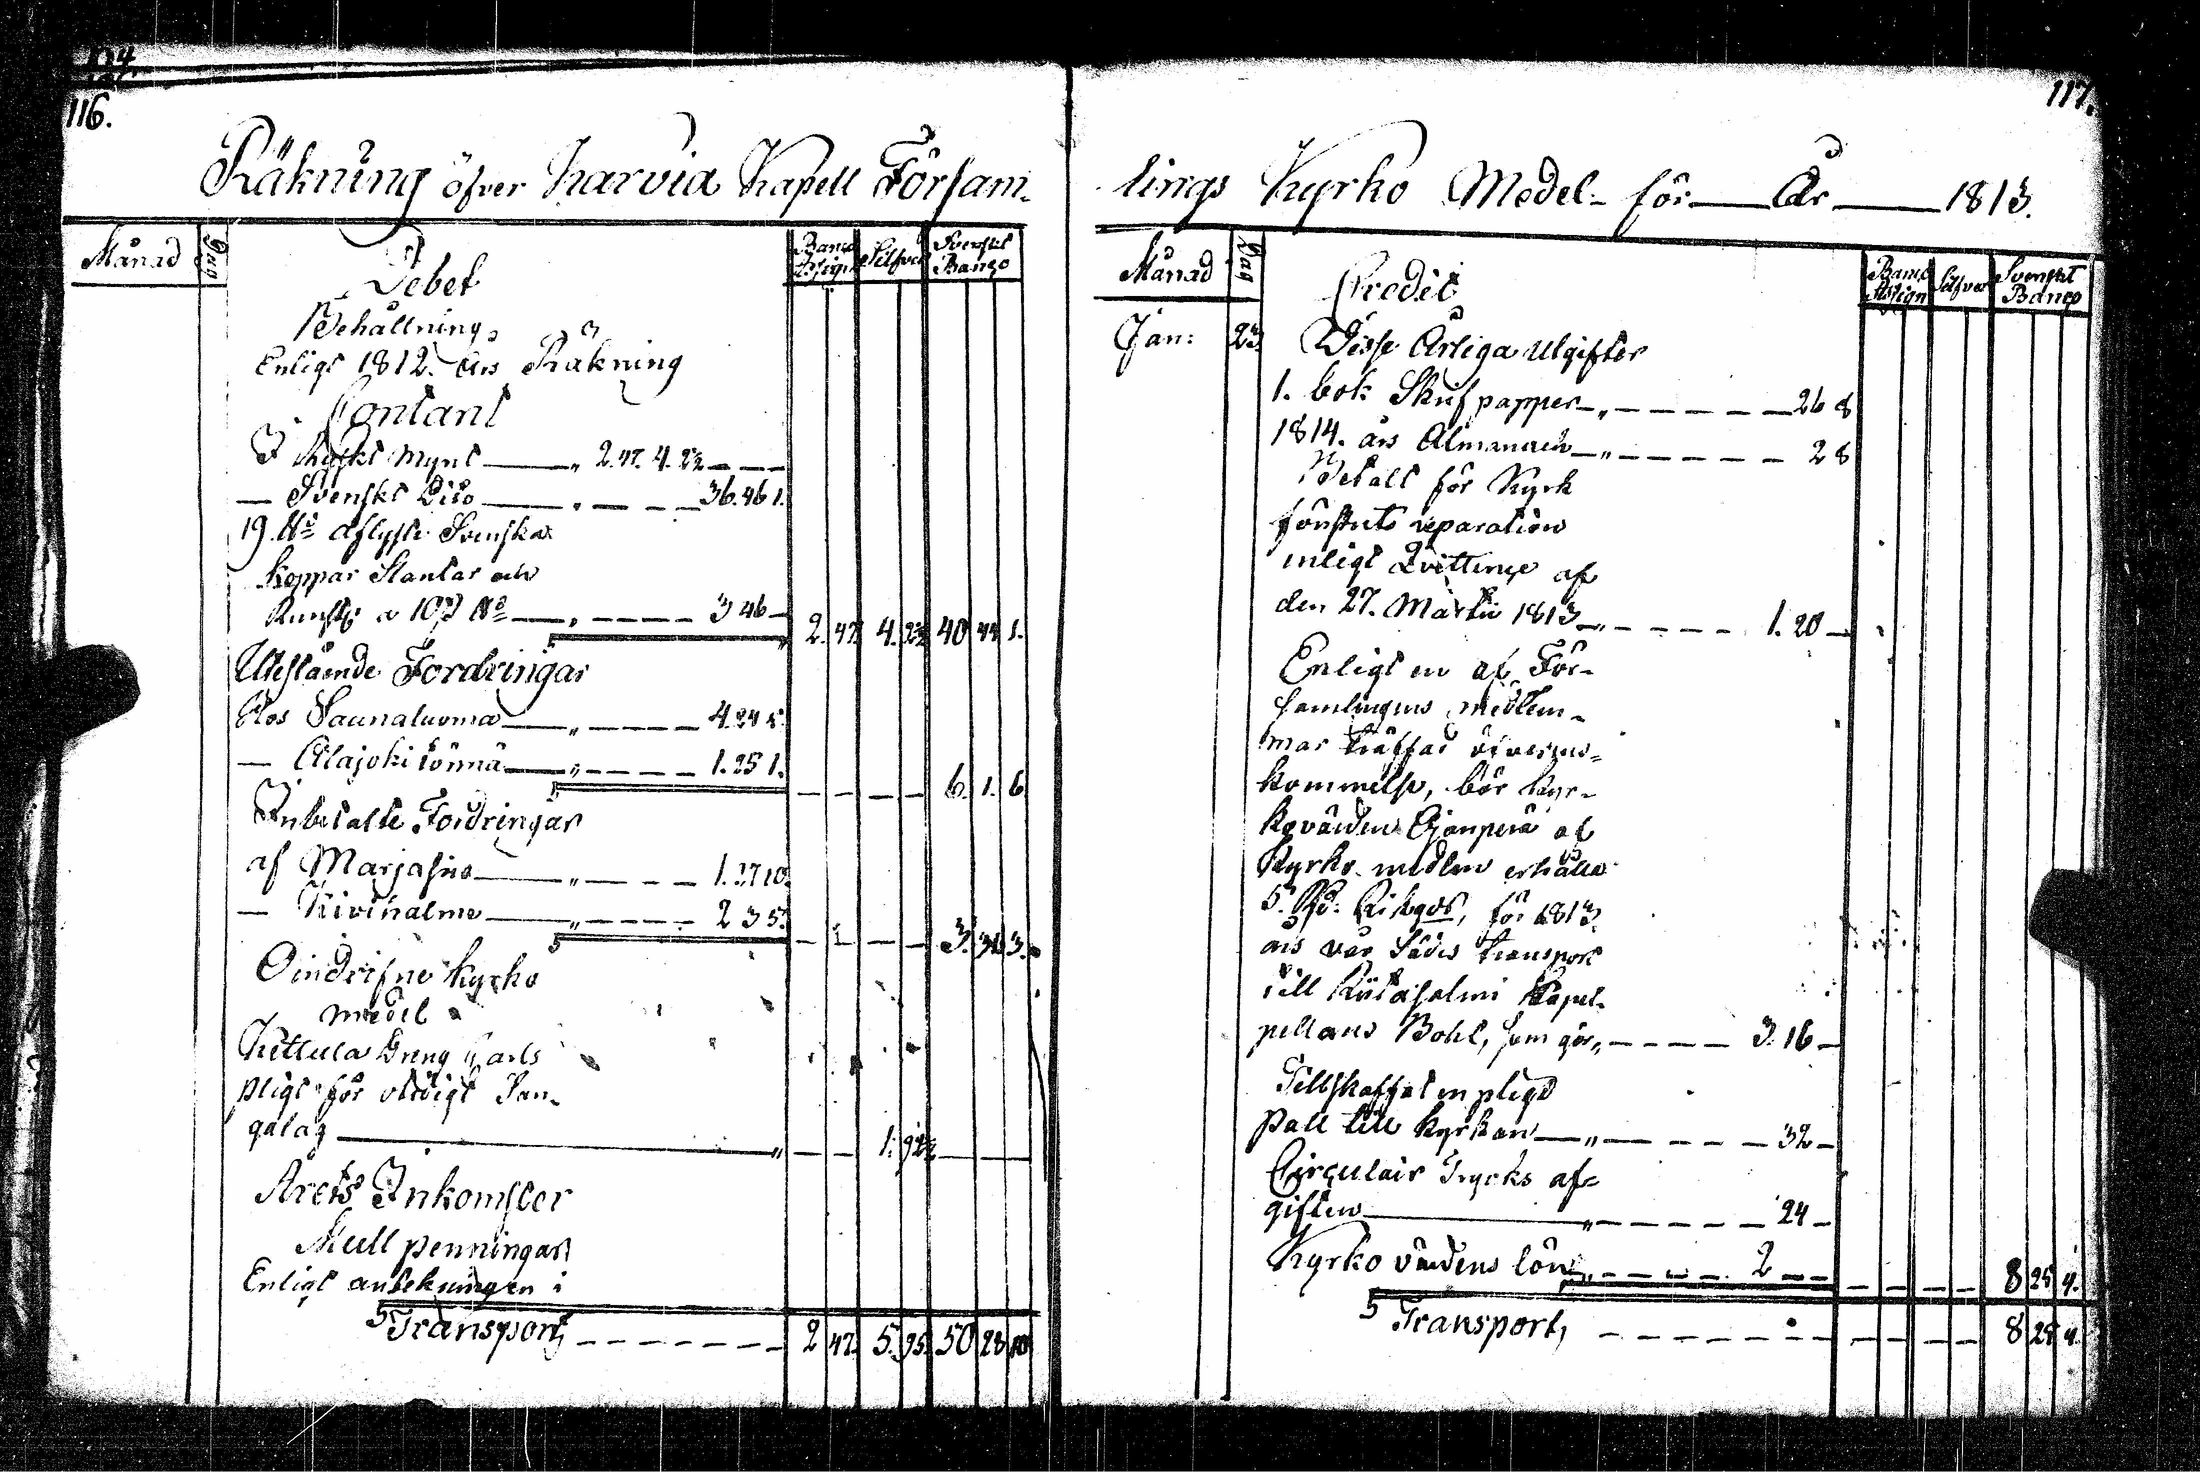 116.
Räkning öfver Karvia Kapell Försam-
Månad Dag Debet Banco Assign Silfver Svenskt Banco
Behållning
Enligt 1812. års Räkning
Contant
I Ryskt Mynt 2.47. 4.
— Svenskt Dito 36.46 1.
19. aflyste Svenska
Koppar Slantar och
3 46 — 2. 47. 4. 40 44 1.
Utestående Fordringar
Hos Saunaluoma 4.24 5.
— Alajoki 1.25 1. 6. 1. 6
Inbetalte Fordringar
af Marjasuo 1. 10.
— Kivihalme 2 3 5. 3. 3.
Oindrifne kyrko
medel
Kettula Dreng Carls
pligt för otidigt Sän-
galag 1.
Årets Inkomster
Mull penningar
Enligt antekningen i
Transport, 2 47. 5. 50 28 10
117.
lings Kyrko Medel för År 1813.
Månad Dag Credit Banco Assign Silfver Svenskt Banco
Jan: 23. Visse Årliga Utgifter
1. bok Skrifpapper 26 8
1814. års Almanach 2 8
Betalt för Kyrk
fönstrets reparation
enligt Qvittence af
den 27. Martii 1813 1. 20 —
Enligt en af För-
samlingens medlem-
mar träffad öfverens-
kommelse, bör kyr-
kovärden Ojanperä af
Kyrko medlen erhålla
5. Rd: Riksgds, för 1813.
års vår Södes transport
till Kapel-
pellans Bohl, som gör 3. 16 —
Tillskaffat en pligt
pall till kyrkan 32 —
Circulair Trycks af-
giften 24 —
Kyrko värdens lön 2 — — 8 28 4.
Transport, 8 28 4.